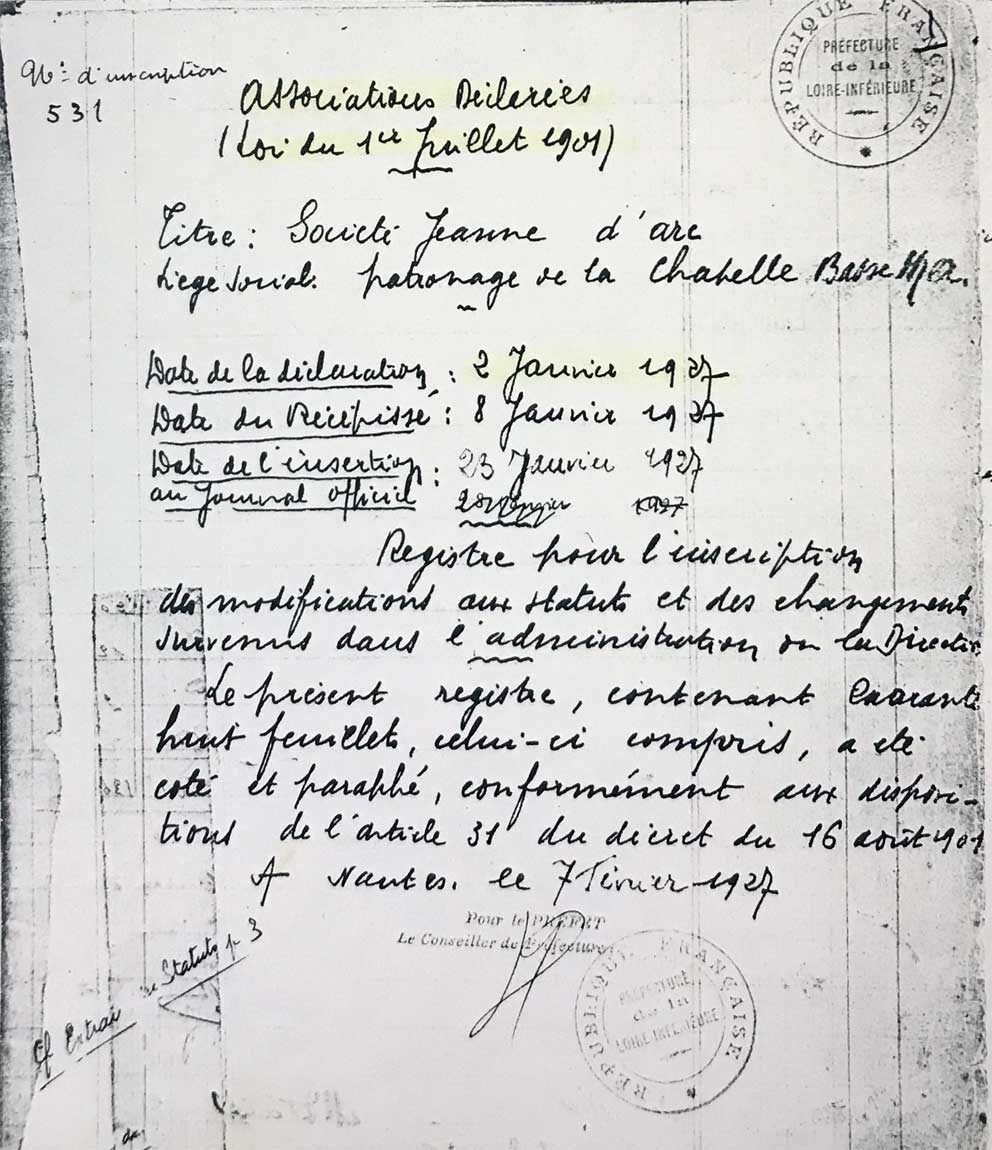 N° d'inscription
531
RÉPUBLIQUE FRANÇAISE
PRÉFECTURE
de la
LOIRE-INFÉRIEURE
Associations Déclarées
(Loi du 1er Juillet 1901)
Titre : Société Jeanne d'arc
Siège Social: patronage de la Chapelle Basse Mer.
Date de la déclaration : 2 Janvier 1927
Date du Récépissé : 8 Janvier 1927
Date de l'insertion : 23 Janvier 1927
au Journal Officiel 1927
Registre pour l'inscription
des modifications aux statuts et des changements
survenus dans l'administration ou la Direction
Le présent registre, contenant Quarante
huit feuillets, celui-ci compris, a été
coté et paraphé, conformément aux disposi-
tions de l'article 31 du décret du 16 août 1901
A Nantes. le 7 Février 1927
Pour le PREFET
Le Conseiller de Préfecture
RÉPUBLIQUE FRANÇAISE
PRÉFECTURE
de la
LOIRE-INFÉRIEURE
Cf Extrait Statuts p 3